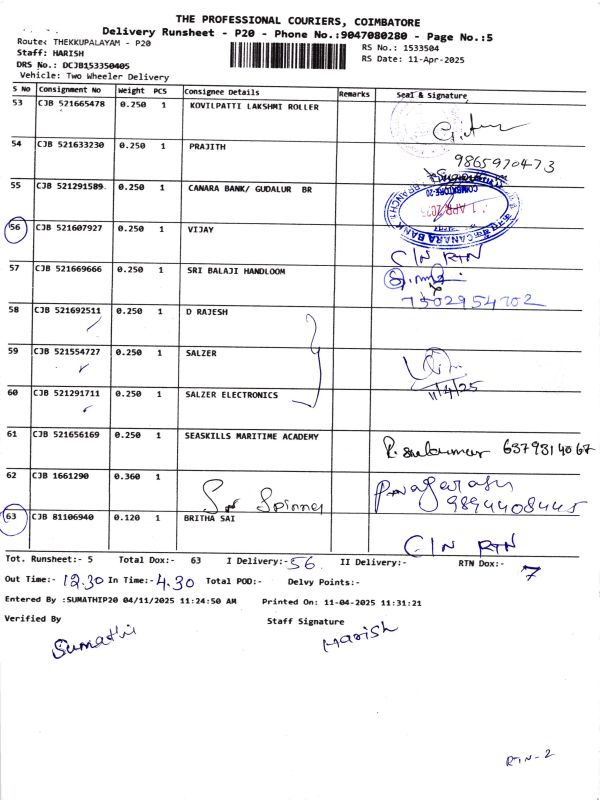 THE PROFESSIONAL COURIERS, COIMBATORE
Delivery Runsheet - P20 - Phone No.:9047080280 - Page No.:5
Route: THEKKUPALAYAM - P20
Staff: HARISH
DRS No.: DCJB153350405
Vehicle: Two Wheeler Delivery
RS No.: 1533504
RS Date: 11-Apr-2025
S No Consignment No Weight PCS Consignee Details Remarks Seal & Signature
53 CJB 521665478 0.250 1 KOVILPATTI LAKSHMI ROLLER
54 CJB 521633230 0.250 1 PRAJITH 9865970473
55 CJB 521291589 0.250 1 CANARA BANK/ GUDALUR BR
COIMBATORE-20
CANARA BANK
56 CJB 521607927 0.250 1 VIJAY C/N RTN
57 CJB 521669666 0.250 1 SRI BALAJI HANDLOOM
7502954702
58 CJB 521692511 0.250 1 D RAJESH
59 CJB 521554727 0.250 1 SALZER
11/4/25
60 CJB 521291711 0.250 1 SALZER ELECTRONICS
61 CJB 521656169 0.250 1 SEASKILLS MARITIME ACADEMY 6379314067
62 CJB 1661290 0.360 1 Sri Spinner
9894408445
63 CJB 81106940 0.120 1 BRITHA SAI C/N RTN
Tot. Runsheet:- 5 Total Dox:- 63 I Delivery:- 56 II Delivery:- RTN Dox:- 7
Out Time:- 12.30 In Time:- 4.30 Total POD:- Delvy Points:-
Entered By :SUMATHIP20 04/11/2025 11:24:50 AM Printed On: 11-04-2025 11:31:21
Verified By Staff Signature
Sumathi Harish
RTN-2